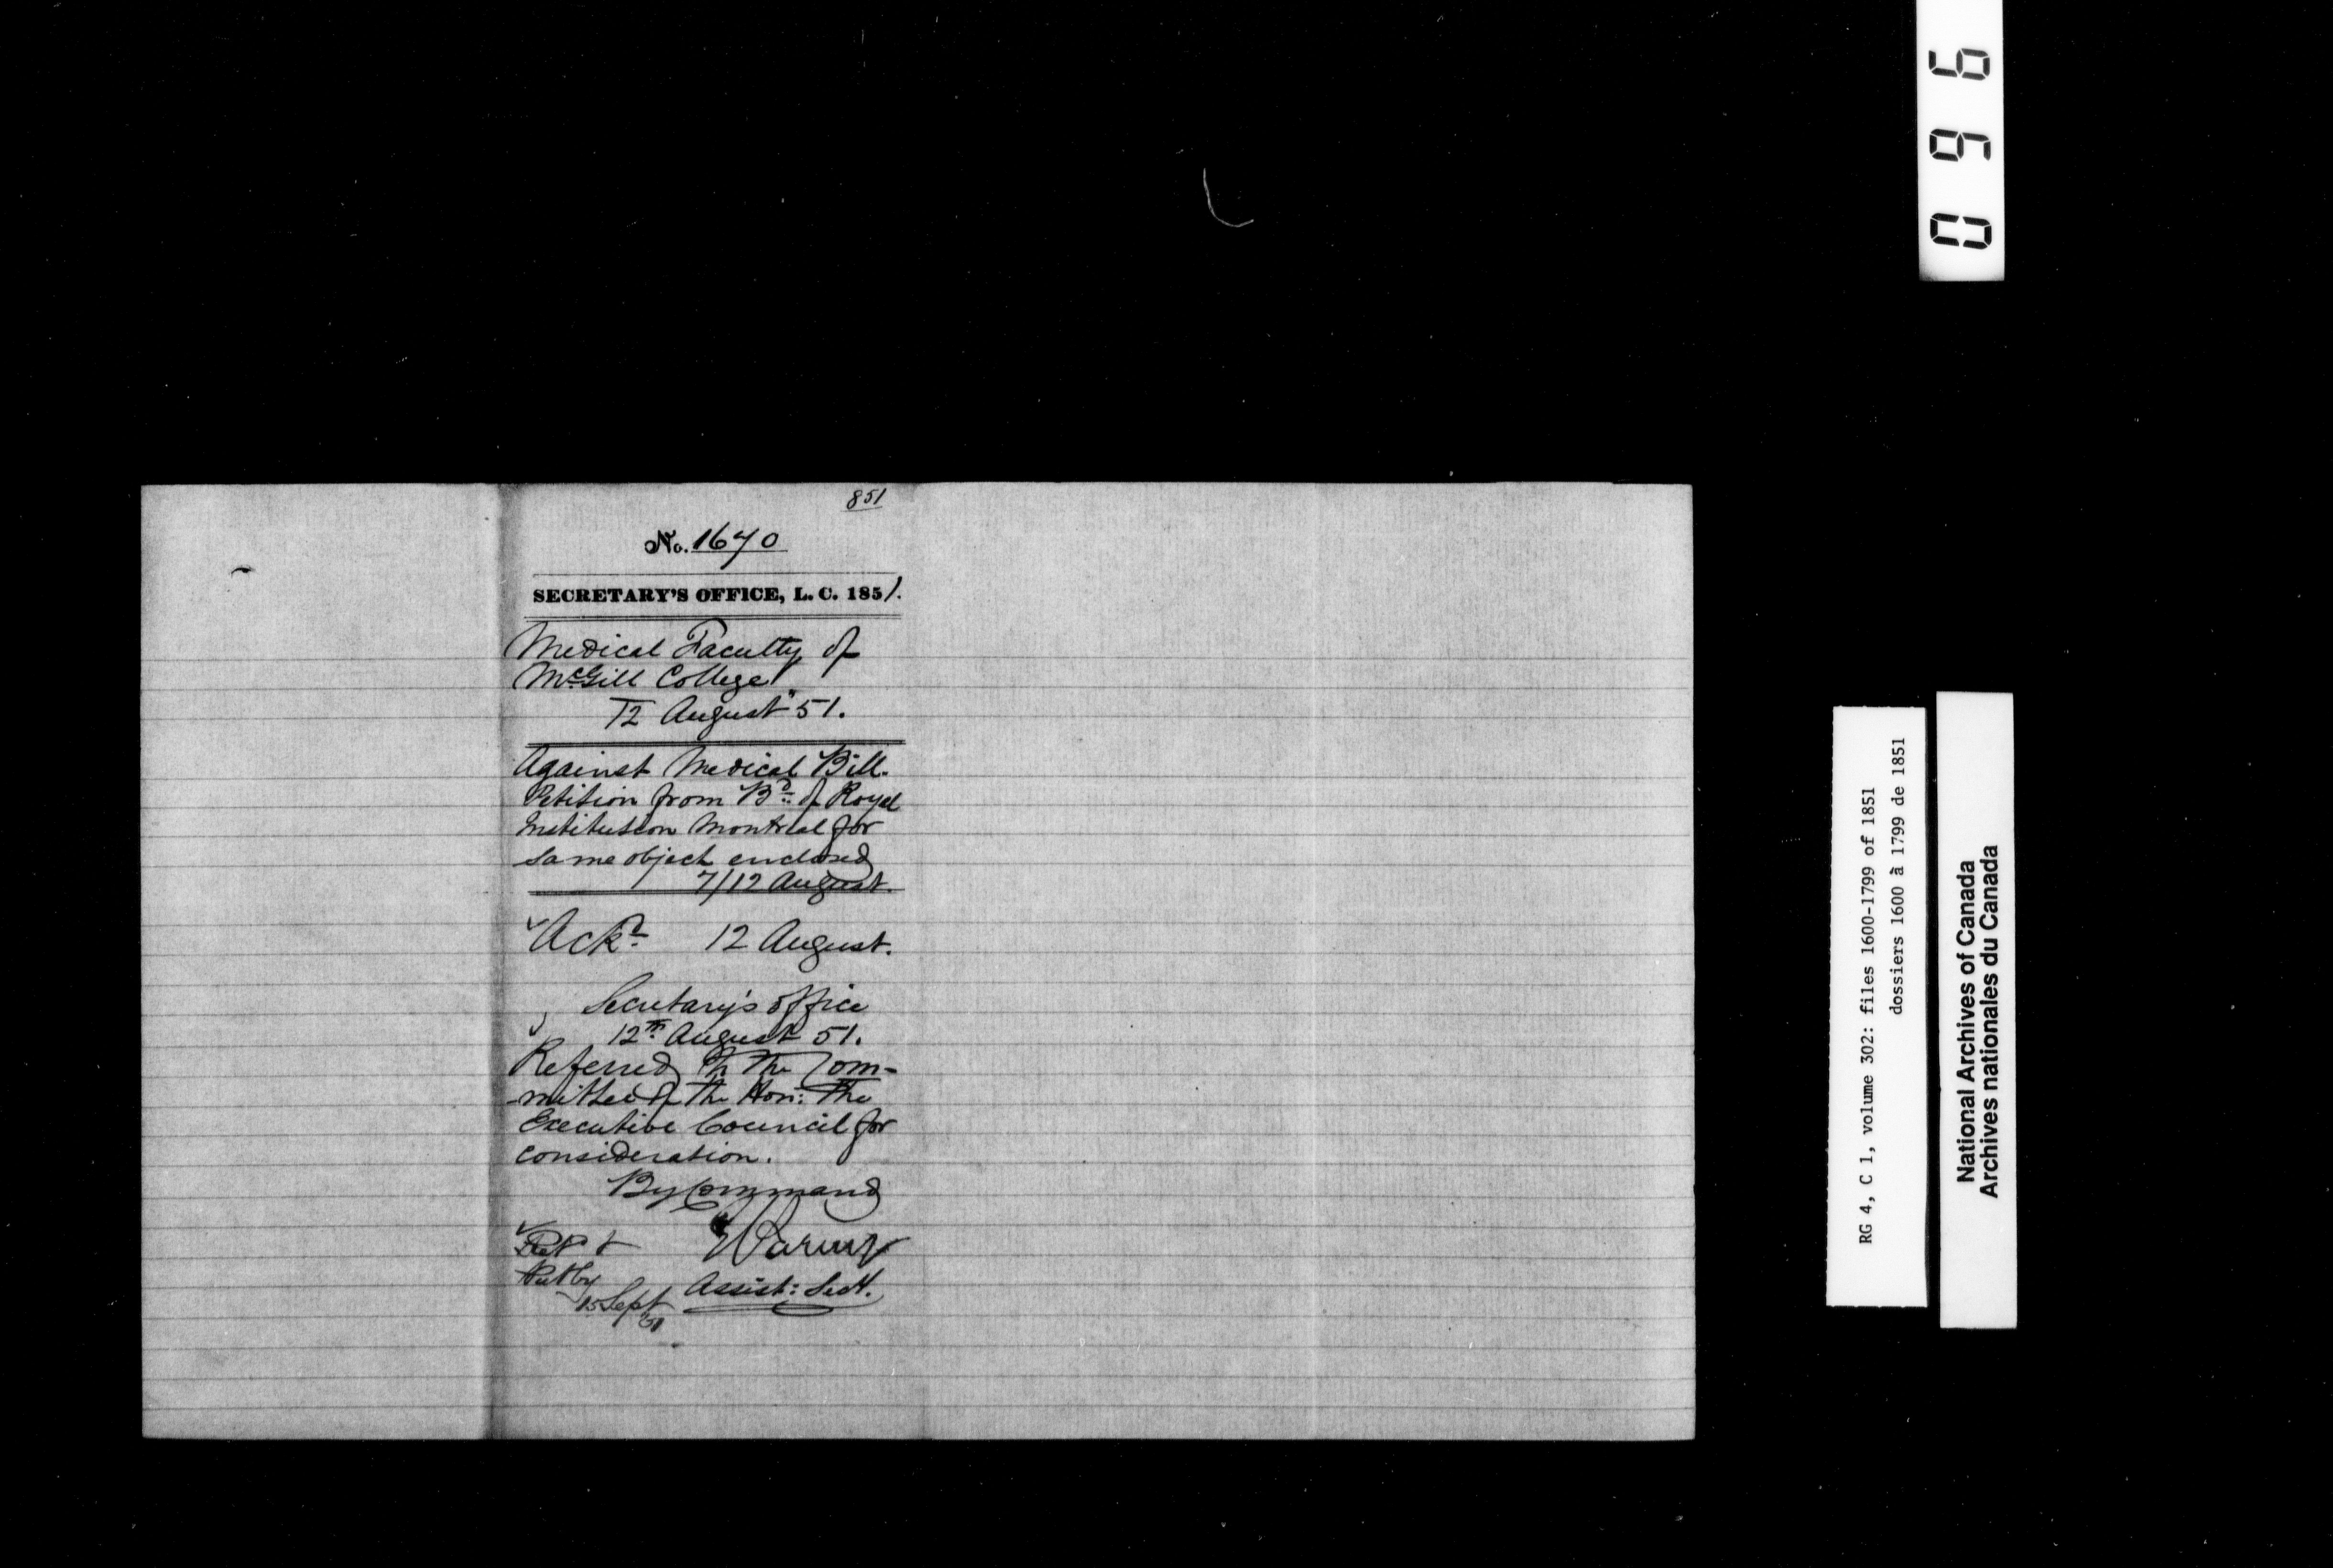 851
No. 1670
SECRETARY'S OFFICE, L. C. 1851.
Medical Faculty of
McGill College
12 August 51.
Against Medical Bill.
Petition from Bd. of Royal
Institution Montreal for
same object enclosed
7/12 August.
Ackd. 12 August.
Secretary's office
12th August 51.
Referred to the Com-
mittee of the Hon: the
Executive Council for
consideration.
By Command
Assist: Secy.
Put by
15 Sept
51
096
RG 4, C 1, volume 302: files 1600-1799 of 1851
dossiers 1600 à 1799 de 1851
National Archives of Canada
Archives nationales du Canada